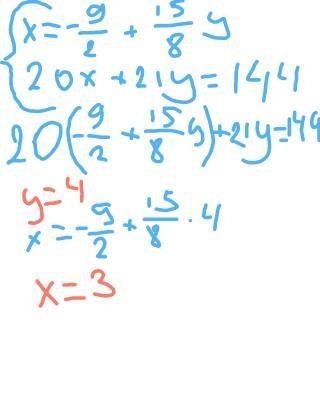 { x = -9/2 + 15/8 y
20x + 21y = 144
20(-9/2 + 15/8 y) + 21y = 144
y = 4
x = -9/2 + 15/8 · 4
x = 3